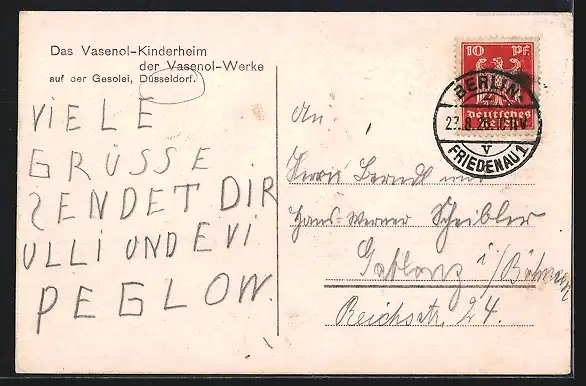 Das Vasenol-Kinderheim
der Vasenol-Werke
auf der Gesolei, Düsseldorf.
VIELE
GRÜSSE
SENDET DIR
ULLI UND EVI
PEGLOW.
10 Pf.
Deutsches
Reich
BERLIN
23.8.26
V
FRIEDENAU 1
An
Herrn Berndt und
Hans-Werner Scheibler
Gablonz i/Böhmen
Reichsstr. 24.